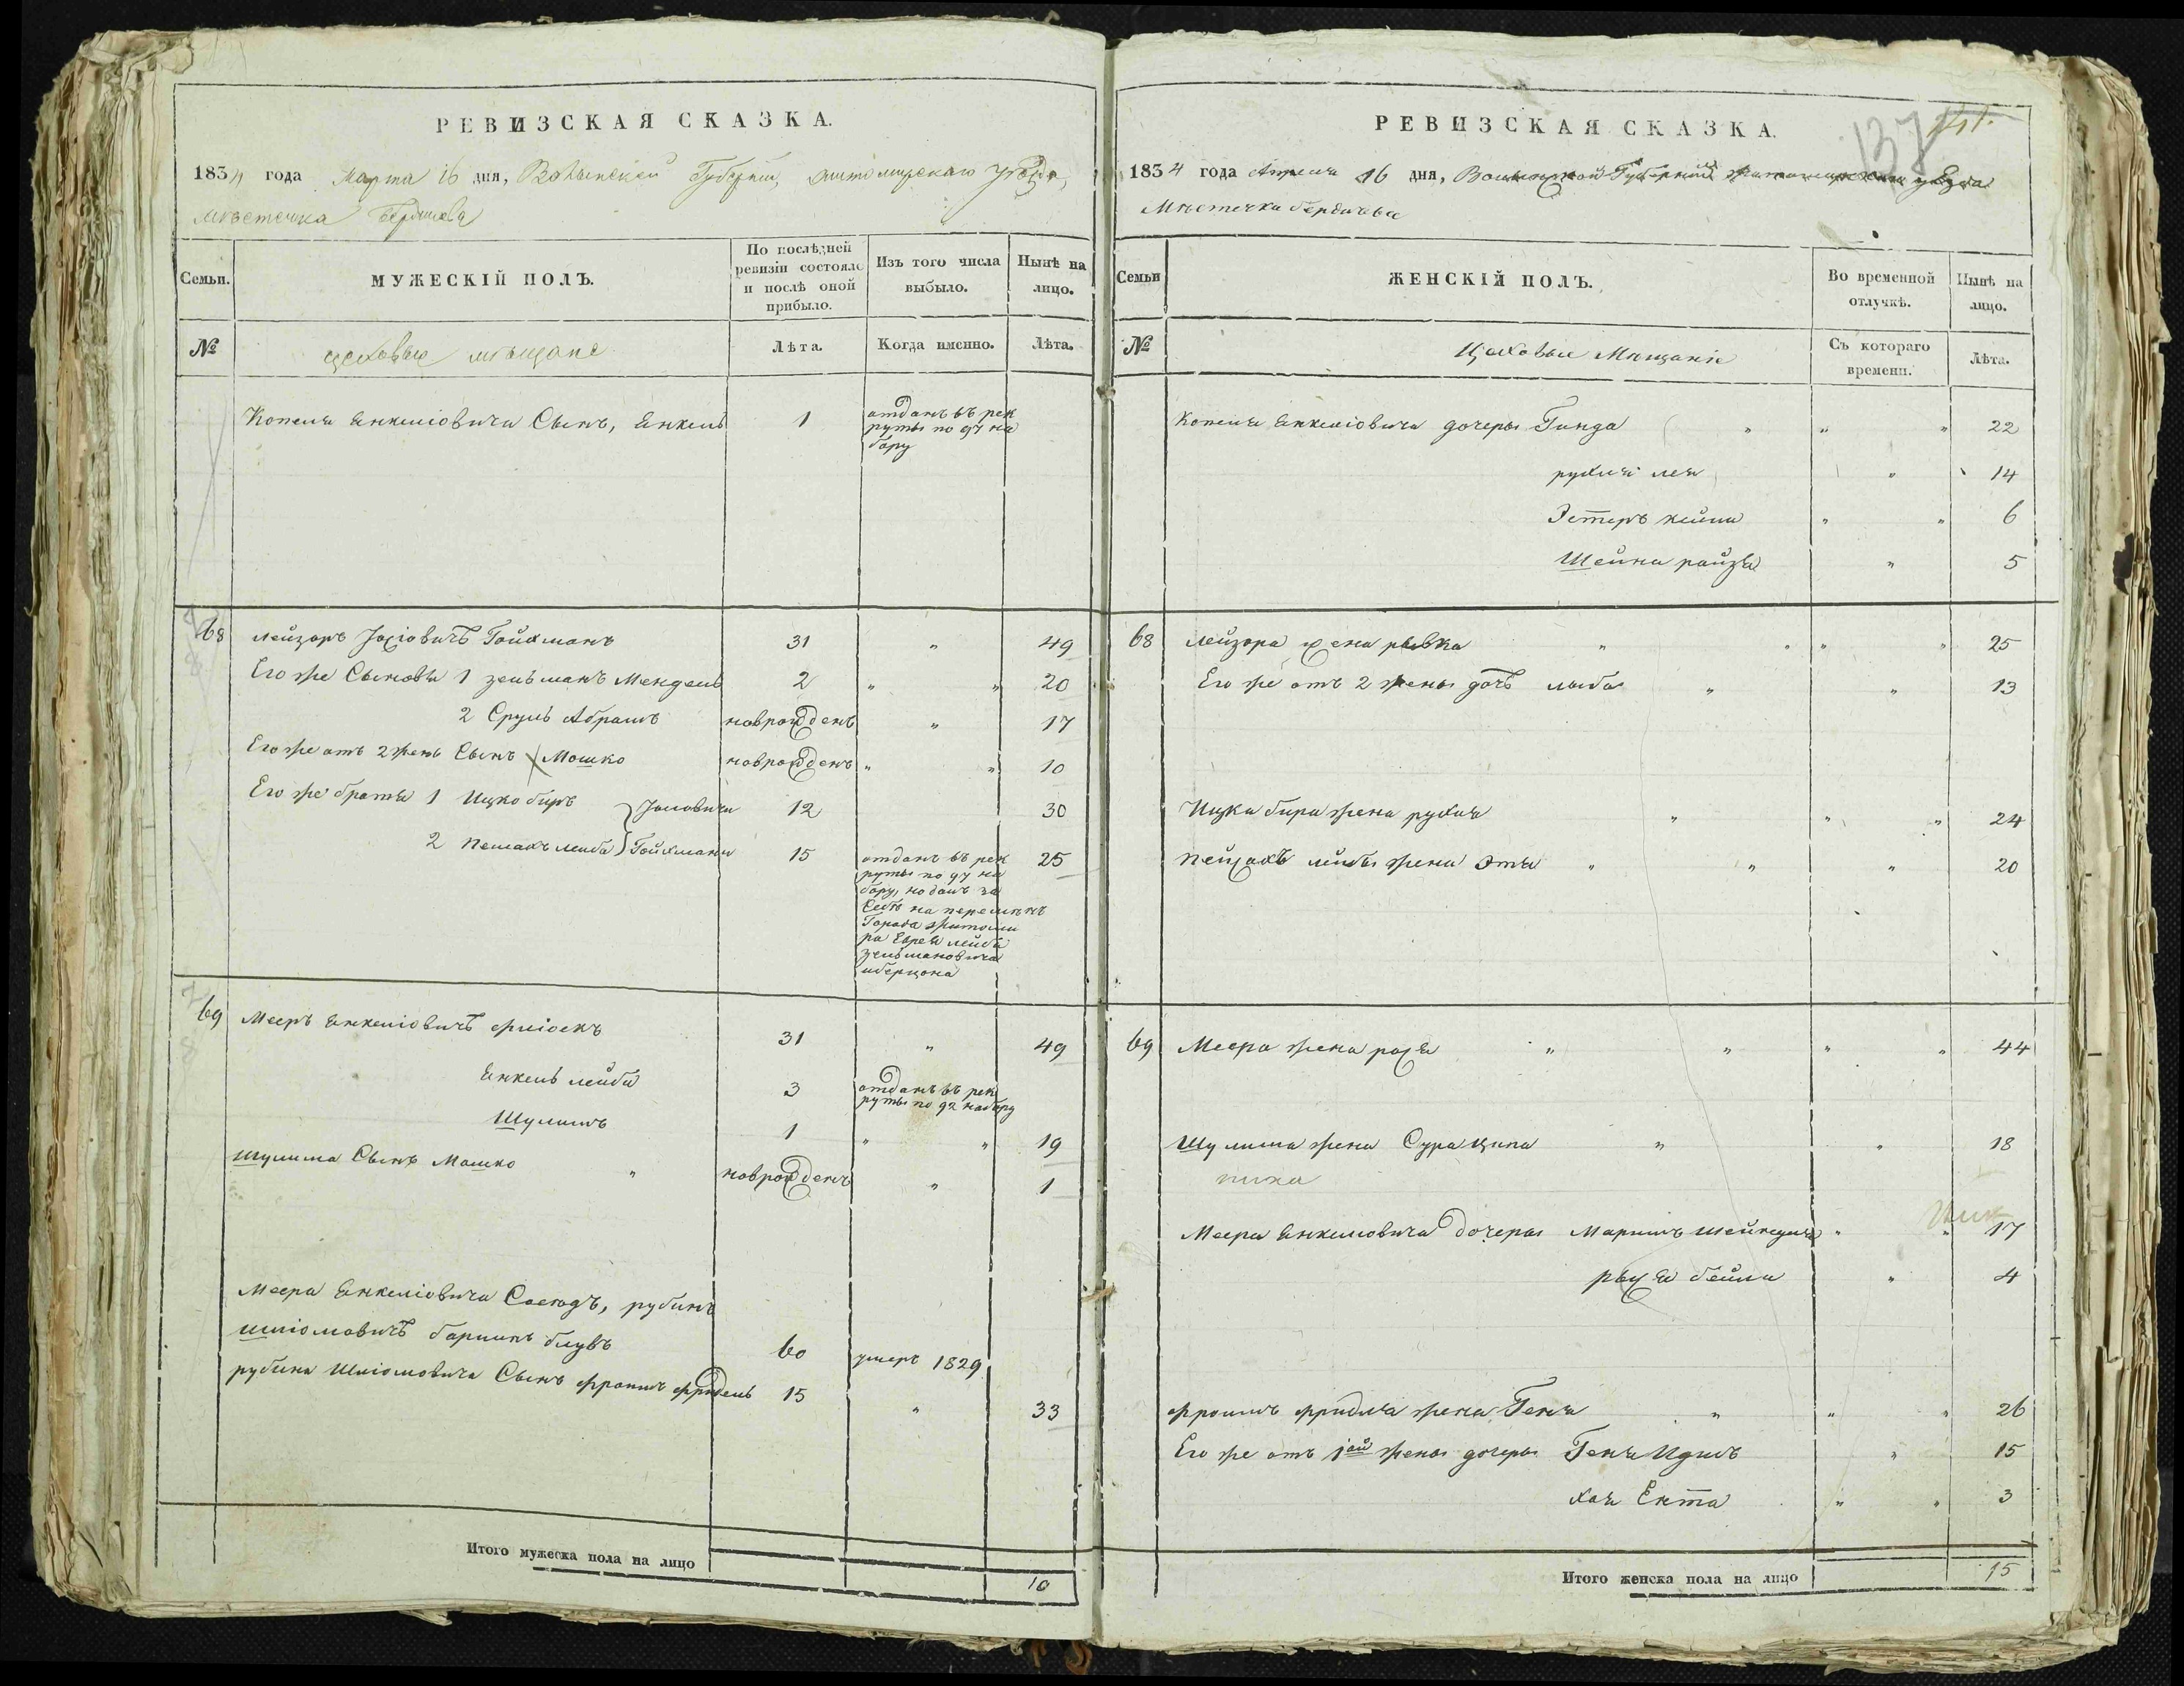 РЕВИЗСКАЯ СКАЗКА.
1834 года Марта 16 дня, Волынской Губерніи, Житомирскаго Уѣзда,
мѣстечка Бердичева
Семьи. МУЖЕСКІЙ ПОЛЪ. По послѣдней ревизіи состояло и послѣ оной прибыло. Изъ того числа выбыло. Нынѣ на лицо.
№ цеховые мѣщане Лѣта. Когда именно. Лѣта.
Копеля Янкеліовича Сынъ, Янкель 1 отданъ въ рек
руты по 97 на
бору
68 Лейзоръ Іосіовичъ Гойхманъ 31 " 49
Его же Сыновья 1 зельманъ Мендель 2 " " 20
2 Сруль Абрамъноврожденъ " 17
Его же отъ 2 жены Сынъ Мошконоврожденъ " " 10
Его же братья 1 Ицко биръ 12 30
2 Пейсахъ лейба Гойхманы 15 отданъ въ рек 25
руты по 97 на
бору, но далъ за
Себя на перемѣнъ
Города Житоми
ра Еврея лейбы
зельмановича
69 Мееръ Янкеліовичъ 31 " 49
Янкель лейба 3 отданъ въ рек
руты по 92 набору
Шулимъ 1 " " 19
Шулима Сынъ Мошко " новрожденъ " 1
Меера Янкеліовича Сосѣдъ, рубинъ
Шліомовичъ 60 умеръ 1829
рубина Шліомовича Сынъ Фроимъ Фридель 15 " 33
Итого мужеска пола на лицо 10
РЕВИЗСКАЯ СКАЗКА.
137
1834 года Апреля 16 дня, Волынской Губерніи Житомирскаго уѣзда
Мѣстечка бердичева
Семьи ЖЕНСКІЙ ПОЛЪ. Во временной отлучкѣ. Нынѣ на лицо.
№ Цеховые Мѣщаніе Съ котораго времени. Лѣта.
Копеля Янкеліовича дочеры Гинда " " " 22
рухля лея " 14
Эстеръ хейна " " 6
Шейна райзя " 5
68 Лейзора жена рывка " " " " 25
Его же отъ 2 жены дочь " " 13
Ицка бира жена рухля " " " 24
Пейсахъ лейбы жена Этя " " " 20
69 Меера жена рося " " " " 44
Шулима жена Сура ципа " " 18
Меера Янкеліовича дочеры Маріямъ шейндля " " 17
рыся бейла " 4
Фроимъ Фридля жена Геня " " " 26
Его же отъ 1ой жены дочеры Геня Идись " 15
хая Ента " " 3
Итого женска пола на лицо 15